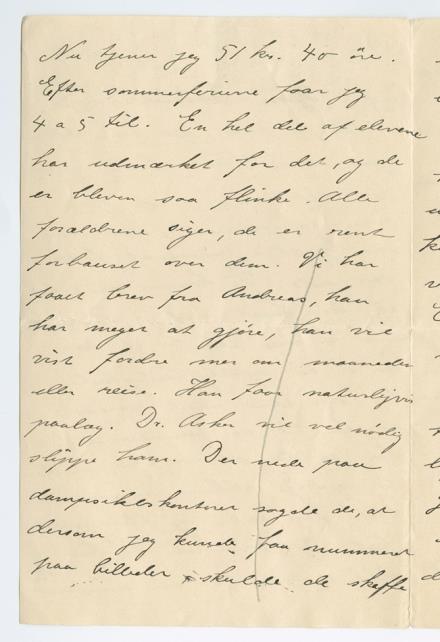 Nu tjener jeg 51 kr. 40 øre.
Efter sommerferierne faar jeg
4 a 5 til. En hel del af eleverne
har udmærket for det, og de
er bleven saa flinke. Alle
forældrene siger, de er rent
forbauset over dem. Vi har
faaet brev fra Andreas, han
har meget at gjøre, han vil
vist fordre mer om maaneden
eller reise. Han faar naturligvis
paalæg. Dr. Asker vil vel nødig
slippe ham. Der nede paa
dampsikelskontoret sagde de, at
dersom jeg kunde faa nummeret
paa billeder skulde de skaffe